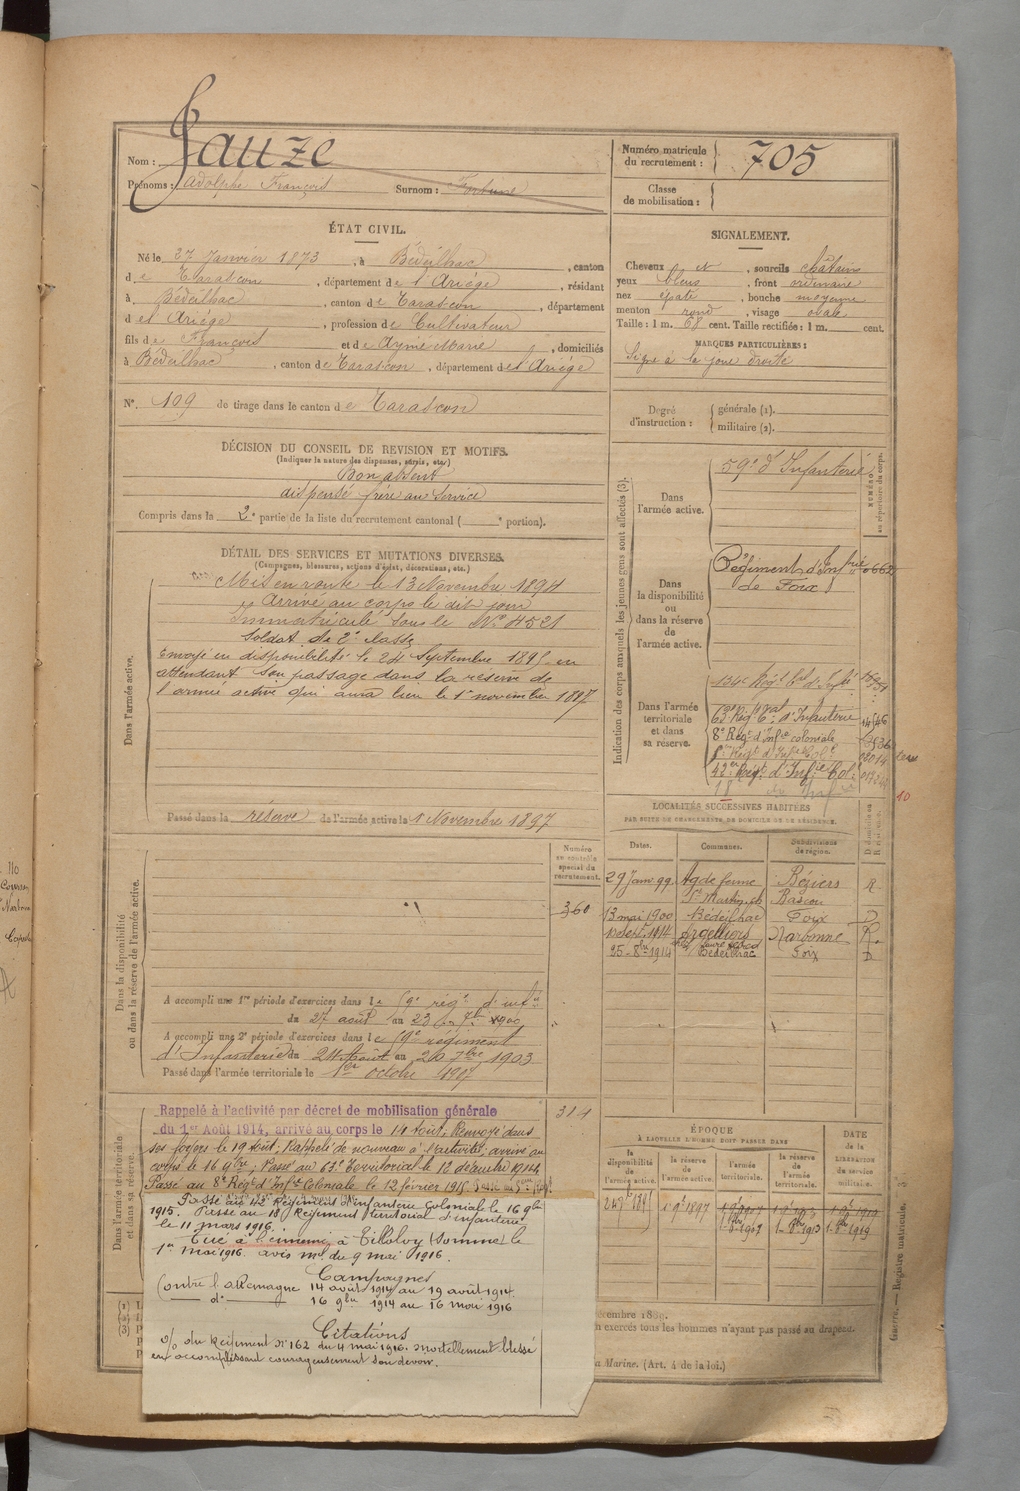 Nom : Jauze
Prénoms : Adolphe François Surnom : Fortuné
Numéro matricule du recrutement : 705
Classe de mobilisation :
ÉTAT CIVIL.
Né le 27 Janvier 1873, à Bédeilhac, canton
de Tarascon, département de l'Ariège, résidant
à Bédeilhac, canton de Tarascon, département
de l'Ariège, profession de Cultivateur
fils de François et de Aynié Marie, domiciliés
à Bédeilhac, canton de Tarascon, département de l'Ariège
N° 109 de tirage dans le canton de Tarascon
SIGNALEMENT.
Cheveux et, sourcils châtains
yeux bleus, front ordinaire
nez épaté, bouche moyenne
menton rond, visage ovale
Taille : 1 m. 68 cent. Taille rectifiée : 1 m. cent.
MARQUES PARTICULIÈRES :
Signe à la joue droite
Degré d'instruction : générale (1).
militaire (2).
DÉCISION DU CONSEIL DE REVISION ET MOTIFS.
(Indiquer la nature des dispenses, sursis, etc.)
Bon absent
dispensé frère au service
Compris dans la 2e partie de la liste du recrutement cantonal ( e portion).
DÉTAIL DES SERVICES ET MUTATIONS DIVERSES.
(Campagnes, blessures, actions d'éclat, décorations, etc.)
Dans l'armée active.
Mis en route le 13 Novembre 1894
Arrivé au corps le dit jour
Immatriculé sous le N° 4521
Soldat de 2e classe
Envoyé en disponibilité le 24 Septembre 1895 en
attendant son passage dans la réserve de
l'armée active qui aura lieu le 1er novembre 1897
Passé dans la réserve de l'armée active le 1 Novembre 1897
Indication des corps auxquels les jeunes gens sont affectés (3).
NUMÉRO au répertoire du corps.
Dans l'armée active.
59e d'Infanterie
Dans la disponibilité ou dans la réserve de l'armée active.
Régiment d'Infrie
de Foix
Dans l'armée territoriale et dans sa réserve.
134e Régt tal d'Infie
63e Régt tal d'Infanterie
8e Régt d'Infie coloniale
42e Régt d'Infie Col
LOCALITÉS SUCCESSIVES HABITÉES
PAR SUITE DE CHANGEMENTS DE DOMICILE OU DE RÉSIDENCE.
Dates. Communes. Subdivisions de région. D domicile R résidence.
29 Janv. 99 Agde Béziers R
13 mai 1900 Bédeilhac Foix D
1914 Argelliers Narbonne R.
25 8bre 1914 Bédeilhac Foix D
Dans la disponibilité ou dans la réserve de l'armée active.
Numéro au contrôle spécial du recrutement.
360
A accompli une 1re période d'exercices dans le 59e régt d'infie
du 27 août au 23 7bre 1900
A accompli une 2e période d'exercices dans le 59e régiment
d'Infanterie du 24 Août au 20 7bre 1903
Passé dans l'armée territoriale le 1er octobre 1907
Dans l'armée territoriale et dans sa réserve.
314
Rappelé à l'activité par décret de mobilisation générale
du 1er Août 1914, arrivé au corps le 14 août, Renvoyé dans
ses foyers le 19 août, Rappelé de nouveau à l'activité, arrivé au
corps le 16 9bre, Passé au 63e Territorial le 12 décembre 1914
Passé au 8e Régt d'Infie Coloniale le 12 février 1915.
Passé au 42 Régiment d'infanterie Coloniale le 16 9bre
1915. Passé au 18 Régiment territorial d'infanterie
le 11 mars 1916.
Tué à l'ennemi à Tilloloy (Somme) le
1er mai 1916. avis ml du 9 mai 1916.
Campagnes
Contre l'allemagne 14 août 1914 au 19 août 1914.
— d° — 16 9bre 1914 au 16 mai 1916
Citations
O/ du Régiment N° 162 du 4 mai 1916. mortellement blessé
en accomplissant courageusement son devoir.
ÉPOQUE
À LAQUELLE L'HOMME DOIT PASSER DANS
DATE de la LIBÉRATION du service militaire.
la disponibilité de l'armée active. la réserve de l'armée active. l'armée territoriale. la réserve de l'armée territoriale.
1er 9bre 1897
(1)
(2)
(3)
décembre 1889.
n exercés tous les hommes n'ayant pas passé au drapeau.
a Marine. (Art. 4 de la loi.)
Guerre. — Registre matricule.